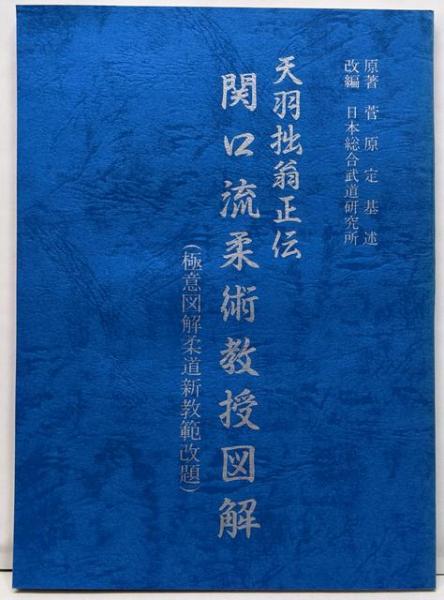 原著　菅原定基述
改編　日本総合武道研究所
天羽拙翁正伝
関口流柔術教授図解
（極意図解柔道新教範改題）